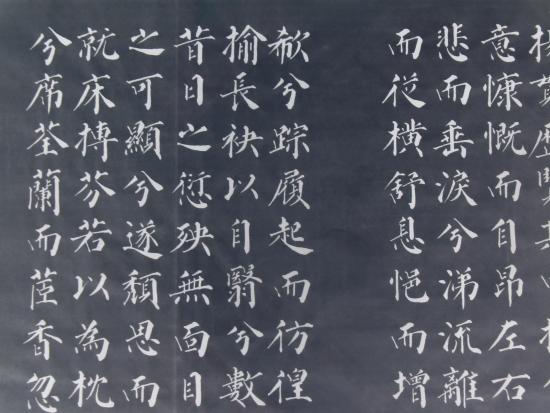 意慷慨而自昂左右
悲而垂淚兮涕流離
而從橫舒息悒而增
欷兮踪履起而彷徨
揄長袂以自翳兮數
昔日之愆殃無面目
之可顯兮遂頹思而
就床摶芬若以為枕
兮席荃蘭而茝香忽